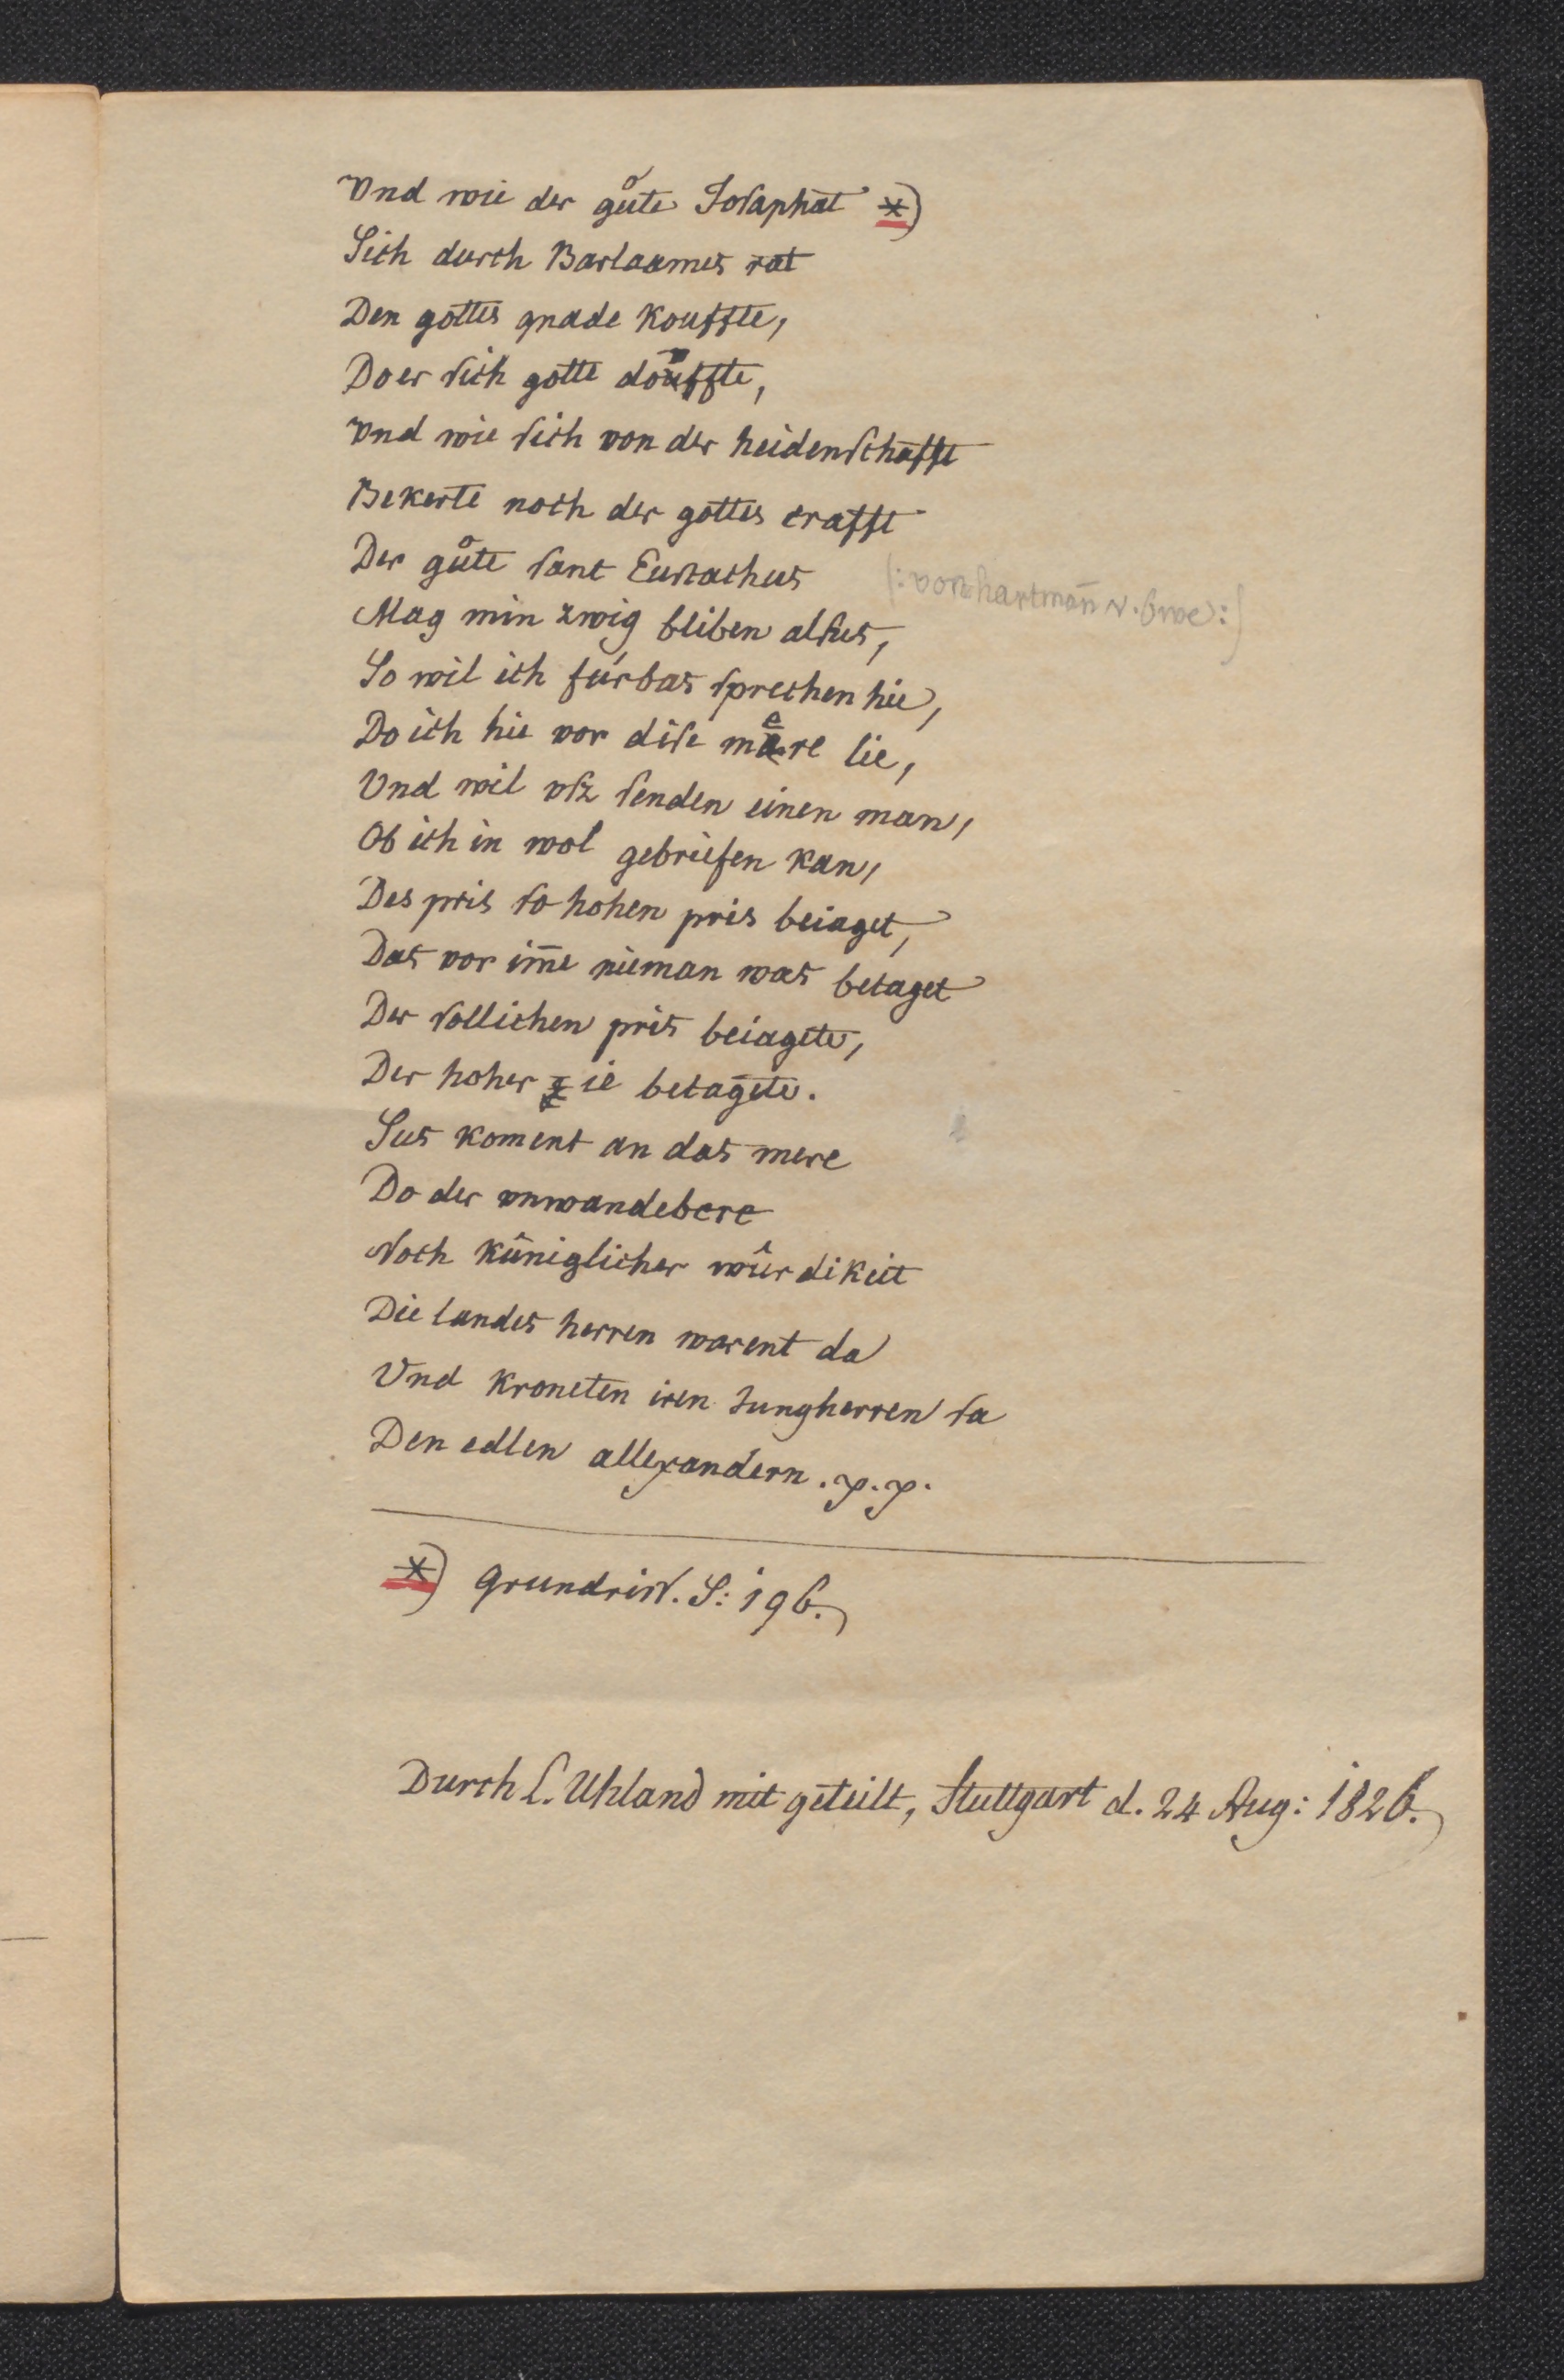 Vnd wie der gůte Josaphat *)
Sich durch Barlaames rat
Den gottes gnade kouffte,
Do er sich gotte douffte,
vnd wie sich von der heidenschafft
Bekerte noch der gottes crafft
Der gůte sant Eustachus
(: von hartman v. :)
Mag min zwig bliben alsus,
So wil ich fúrbas sprechen hie,
Do ich hie vor dise mere lie,
Und wil vsz senden einen man,
Ob ich in wol gebriefen kan,
Des pris so hohen pris beiaget,
Das vor im̄e nieman was betaget
Der sollichen pris beiagete,
Der hoher ie betagete.
Sus koment an das mere
Do der vnwandebere
Noch kûniglicher wûrdikeit
Die landes herren warent da
Und kroneten iren Jungherren sa
Den edlen allexandern. p. p.
*) Grundriss. S: 196.
Durch L. Uhland mit geteilt, Stuttgart d. 24 Aug: 1826.